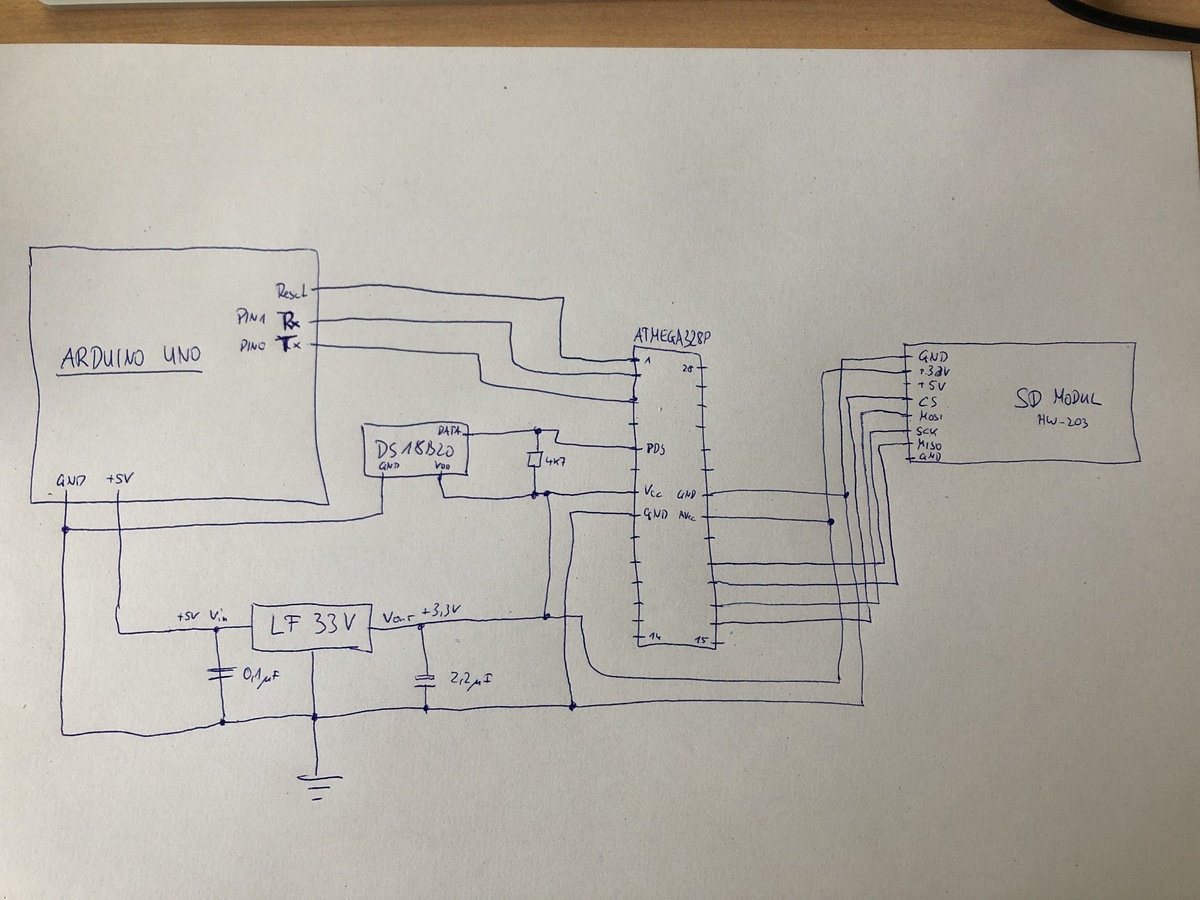 Reset
PIN1 Rx
PIN0 Tx
ARDUINO UNO
GND +5V
DATA
DS18B20
GND VDD
4k7
ATMEGA328P
1
28
PD5
Vcc GND
GND AVcc
14 15
GND
+3.3V
+5V
CS
MOSI
SCK
MISO
GND
SD MODUL
HW-203
+5V Vin
LF 33V
Vout +3,3V
0,1µF